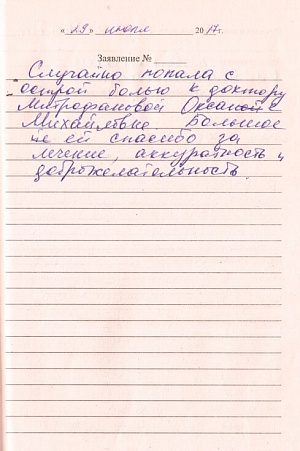 « 29 » июля 2017г.
Заявление № ______
Случайно попала с
острой болью к доктору
Митрофановой Оксаной е
Михайловне Большое
ей спасибо за
лечение, аккуратность и
доброжелательность.